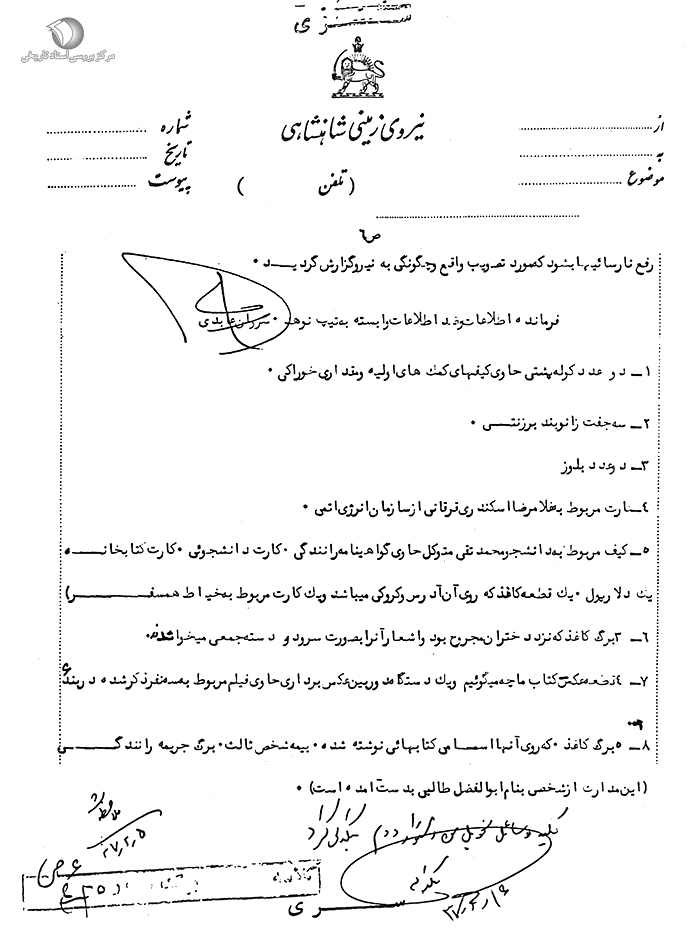 سری
مرکز بررسی اسناد تاریخی
نیروی زمینی شاهنشاهی
از
به
موضوع
شماره
تاریخ
پیوست
(تلفن )
ص ٦
رفع نارسائیها بشود که مورد تصویب واقع و چگونگی به نیرو گزارش گردید ۰
فرمانده اطلاعات و ضد اطلاعات وابسته به تیپ نوهد ۰ عابدی
۱ـ دو عدد کوله پشتی حاوی کیفهای کمک های اولیه و مقداری خوراکی ۰
۲ـ سه جفت زانوبند برزنتی ۰
۳ـ دو عدد بلوز
٤ـ کارت مربوط به غلامرضا اسکندری ترقانی از سازمان انرژی اتمی ۰
٥ـ کیف مربوط به دانشجو محمد تقی متوکل حاوی گواهینامه رانندگی ۰ کارت دانشجوئی ۰ کارت کتابخانه
یک دلار پول ۰ یک قطعه کاغذ که روی آن آدرس و کروکی میباشد و یک کارت مربوط به خیاط همسفر)
٦ـ ۳ برگ کاغذ که نزد دختران مجروح بود و اشعار آنرا بصورت سرود و دسته جمعی میخواندند۰
۷ـ ٤ قطعه عکس کتاب ما چه میگوئیم و یک دستگاه دوربین عکس برداری حاوی فیلم مربوط به سه نفر ذکر شده در بند ٤
۸ـ ٥ برگ کاغذ ۰ که روی آنها اسامی کتابهائی نوشته شده ۰ بیمه شخص ثالث ۰ برگ جریمه رانندگی
(این مدارک از شخصی بنام ابوالفضل طالبی بدست آمده است) ۰
ملاحظه شد
۳۷٫۲٫۵
سری